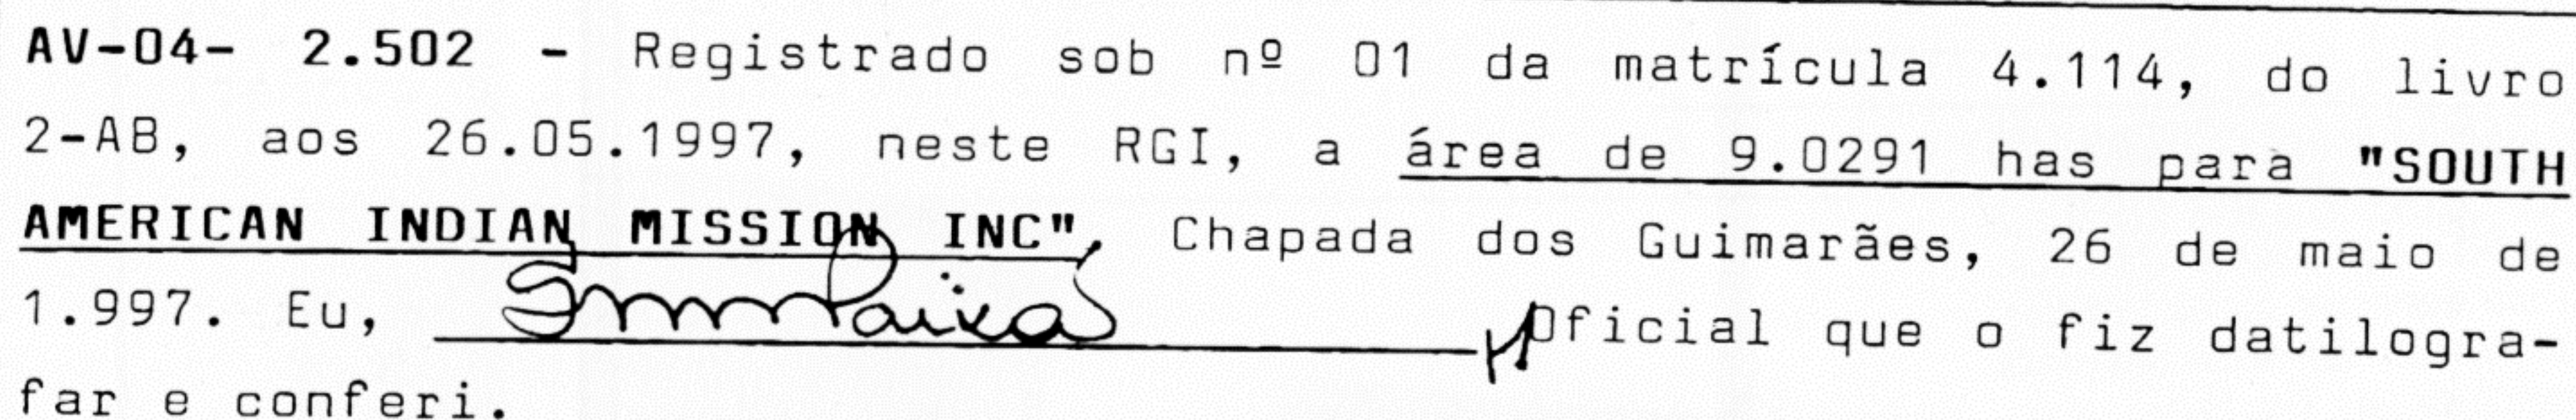 AV-04- 2.502 - Registrado sob nº 01 da matrícula 4.114, do livro
2-AB, aos 26.05.1997, neste RGI, a área de 9.0291 has para "SOUTH
AMERICAN INDIAN MISSION INC", Chapada dos Guimarães, 26 de maio de
1.997. Eu, Oficial que o fiz datilogra-
far e conferi.